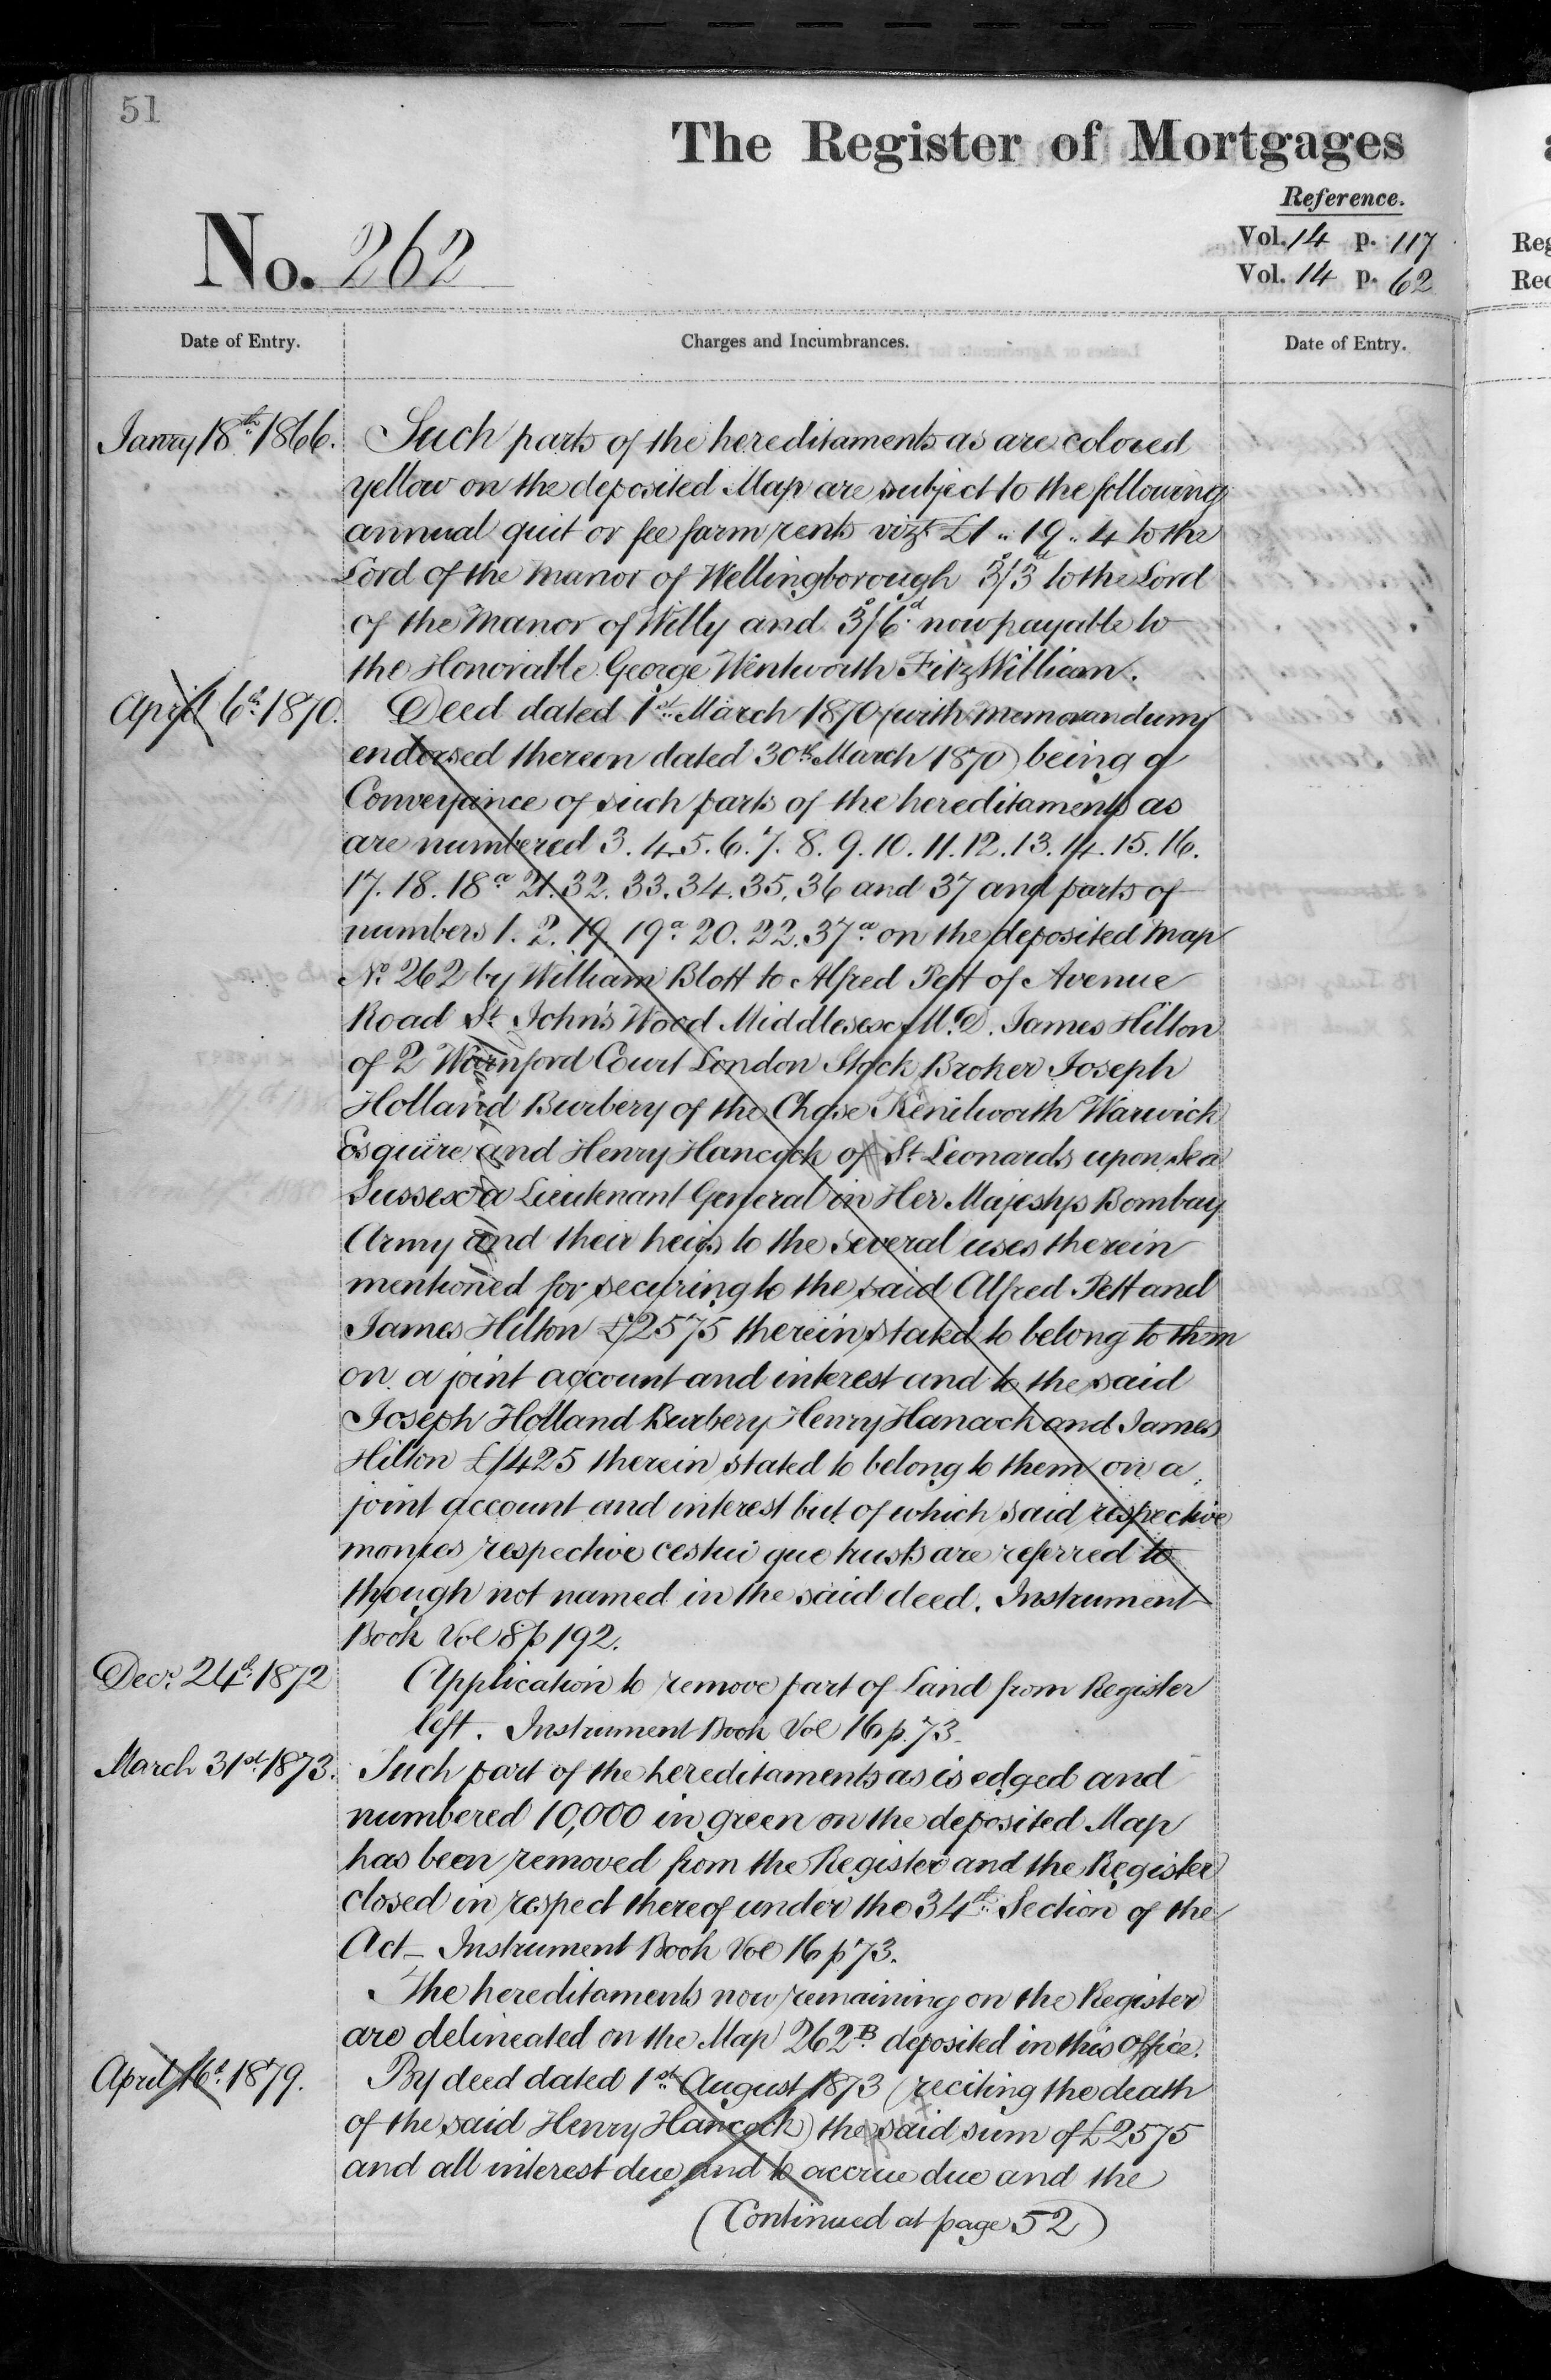 51
The Register of Mortgages
Reference.
No. 262
Vol. 14 p. 117
Vol. 14 p. 62
Date of Entry.
Charges and Incumbrances.
Date of Entry.
Janry 18th 1866.
Such parts of the hereditaments as are colored
yellow on the deposited Map are subject to the following
annual quit or fee farm rents vizt £1 " 19 " 4 to the
Lord of the Manor of Wellingborough 3s/3d to the Lord
of the Manor of Willy and 3s/6d now payable to
the Honorable George Wentworth FitzWilliam.
April 6th 1870.
Deed dated 1st March 1870 (with memorandum
endorsed thereon dated 30th March 1870) being a
Conveyance of such parts of the hereditaments as
are numbered 3. 4. 5. 6. 7. 8. 9. 10. 11. 12. 13. 14. 15. 16.
17. 18. 18a 21. 32. 33. 34. 35. 36 and 37 and parts of
numbers 1. 2. 19. 19a 20. 22. 37a on the deposited Map
No 262 by William Blott to Alfred Pett of Avenue
Road St John's Wood Middlesex M.D. James Hilton
of 2 Warnford Court London Stock Broker Joseph
Holland Burbery of the Chase Kenilworth Warwick
Esquire and Henry Hancock of St Leonards upon Sea
Sussex a Lieutenant General in Her Majestys Bombay
Army and their heirs to the several uses therein
mentioned for securing to the said Alfred Pett and
James Hilton £2575 therein stated to belong to them
on a joint account and interest and to the said
Joseph Holland Burbery Henry Hancock and James
Hilton £1425 therein stated to belong to them on a
joint account and interest but of which said respective
monies respective cestui que trusts are referred to
though not named in the said deed. Instrument
Book Vol 8 p 192.
Decr 24th 1872
Application to remove part of Land from Register
left. Instrument Book Vol 16 p. 73.
March 31st 1873.
Such part of the hereditaments as is edged and
numbered 10,000 in green on the deposited Map
has been removed from the Register and the Register
closed in respect thereof under the 34th Section of the
Act - Instrument Book Vol 16 p 73.
The hereditaments now remaining on the Register
are delineated on the Map 262B deposited in this office.
April 16th 1879.
By deed dated 1st August 1873 (reciting the death
of the said Henry Hancock) the said sum of £2575
and all interest due and to accrue due and the
(Continued at page 52)